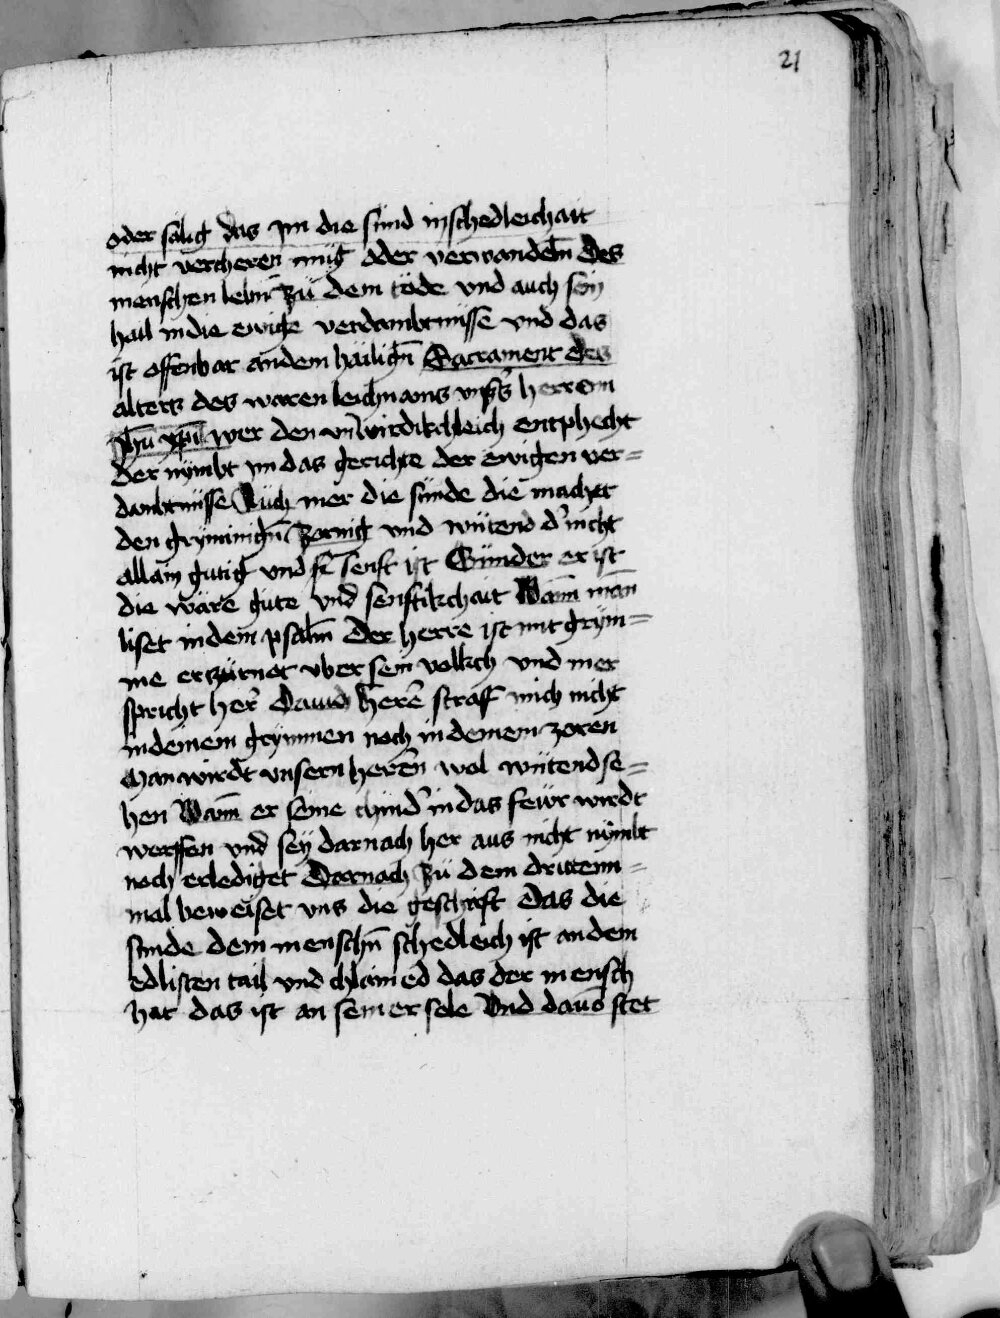 21
oder sälig das im die sünd in schedleichait
nicht vercheren müg oder verwandeln̄ Des
menschen lebn̄ Zů dem töde vnd auch sein
hail in die ewige verdambtnüsse vnd das
ist offenbar an dem häilign̄ Sacrament des
alters des waren leichnams vnsˀs herrenn
jhū xp̄i wer den vn wirdikchleich entphecht
der nymbt im das gerichte der ewigen ver=
dambtnüsse Auch mer die sünde die machet
den grymmign̄ zornig vnd wütend dˀ nicht
allain gutig vnd senft ist Sünder er ist
die ware gute vnd senftikchait Wann̄ man
liset in dem psalm̄ Der herre ist mit grym=
me erzürnet vber sein volkch vnd mer
spricht herˀ Dauid herˀ straf mich nicht
in deinem grymmen noch in deinem zoren
Man wirdt vnsern herrˀn wol wütend se=
hen Wann̄ er seine chindˀ in das fewr wirdt
werffen vnd sey darnach her aus nicht nymbt
noch erlediget Darnach Zů dem drittenn=
mal beweiset vns die geschrift Das die
sunde dem menschn̄ schedleich ist an dem
edlisten tail vnd chlained das der mensch
hat das ist an seiner sele Vnd dauō stet